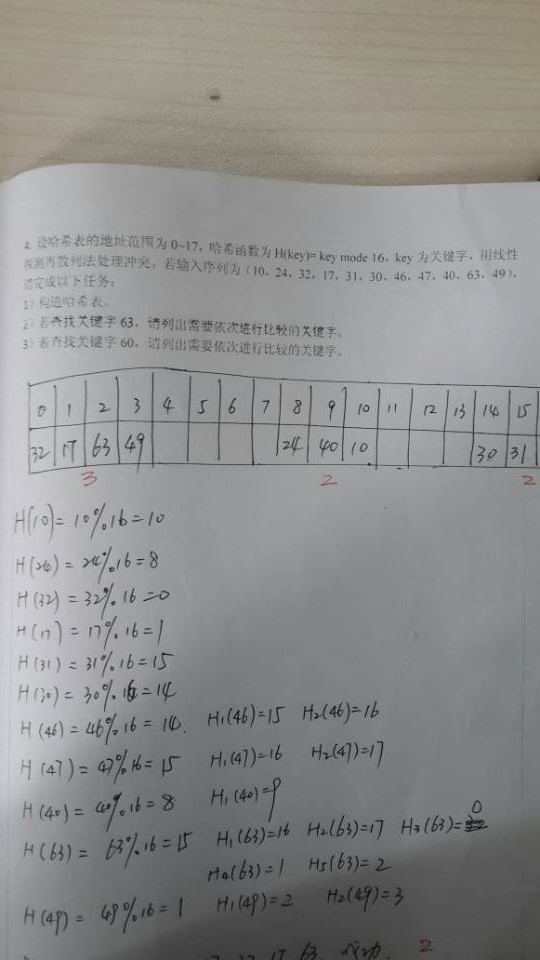 4. 设哈希表的地址范围为 0~17，哈希函数为 H(key)= key mode 16，key 为关键字，用线性
探测再散列法处理冲突。若输入序列为（10、24、32、17、31、30、46、47、40、63、49），
请完成以下任务：
1）构造哈希表。
2）若查找关键字 63，请列出需要依次进行比较的关键字。
3）若查找关键字 60，请列出需要依次进行比较的关键字。
0 1 2 3 4 5 6 7 8 9 10 11 12 13 14 15
32 17 63 49 24 40 10 30 31
3 2 2
H(10) = 10%16 = 10
H(24) = 24%16 = 8
H(32) = 32%16 = 0
H(17) = 17%16 = 1
H(31) = 31%16 = 15
H(30) = 30%16 = 14
H(46) = 46%16 = 14. H1(46)=15 H2(46)=16
H(47) = 47%16 = 15 H1(47)=16 H2(47)=17
H(40) = 40%16 = 8 H1(40)=9
H(63) = 63%16 = 15 H1(63)=16 H2(63)=17 H3(63)=0
H4(63)=1 H5(63)=2
H(49) = 49%16 = 1 H1(49)=2 H2(49)=3
17 63 成功. 2